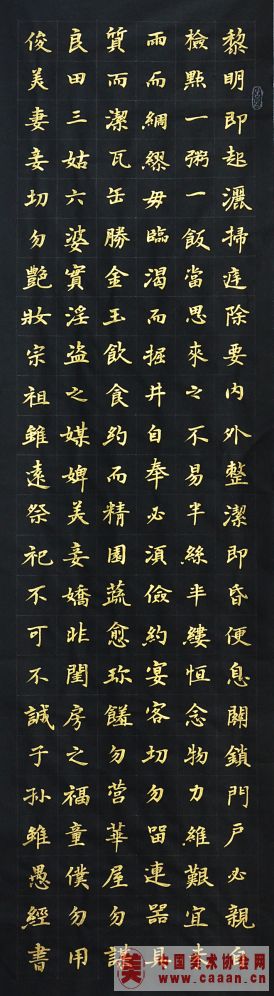 黎明即起灑掃庭除要内外整潔即昏便息關鎖門户必親自
檢點一粥一飯當思來之不易半絲半縷恒念物力維艱宜未
雨而綢繆毋臨渴而掘井自奉必湏儉約宴客切勿留連器具
質而潔瓦缶勝金玉飲食約而精園蔬愈珎饈勿營華屋勿謀
良田三姑六婆實淫盗之媒婢美妾嬌非閨房之福童僕勿用
俊美妻妾切勿艷妝宗祖雖遠祭祀不可不誠子孫雖愚經書
中国美术协会网
www.caaan.cn